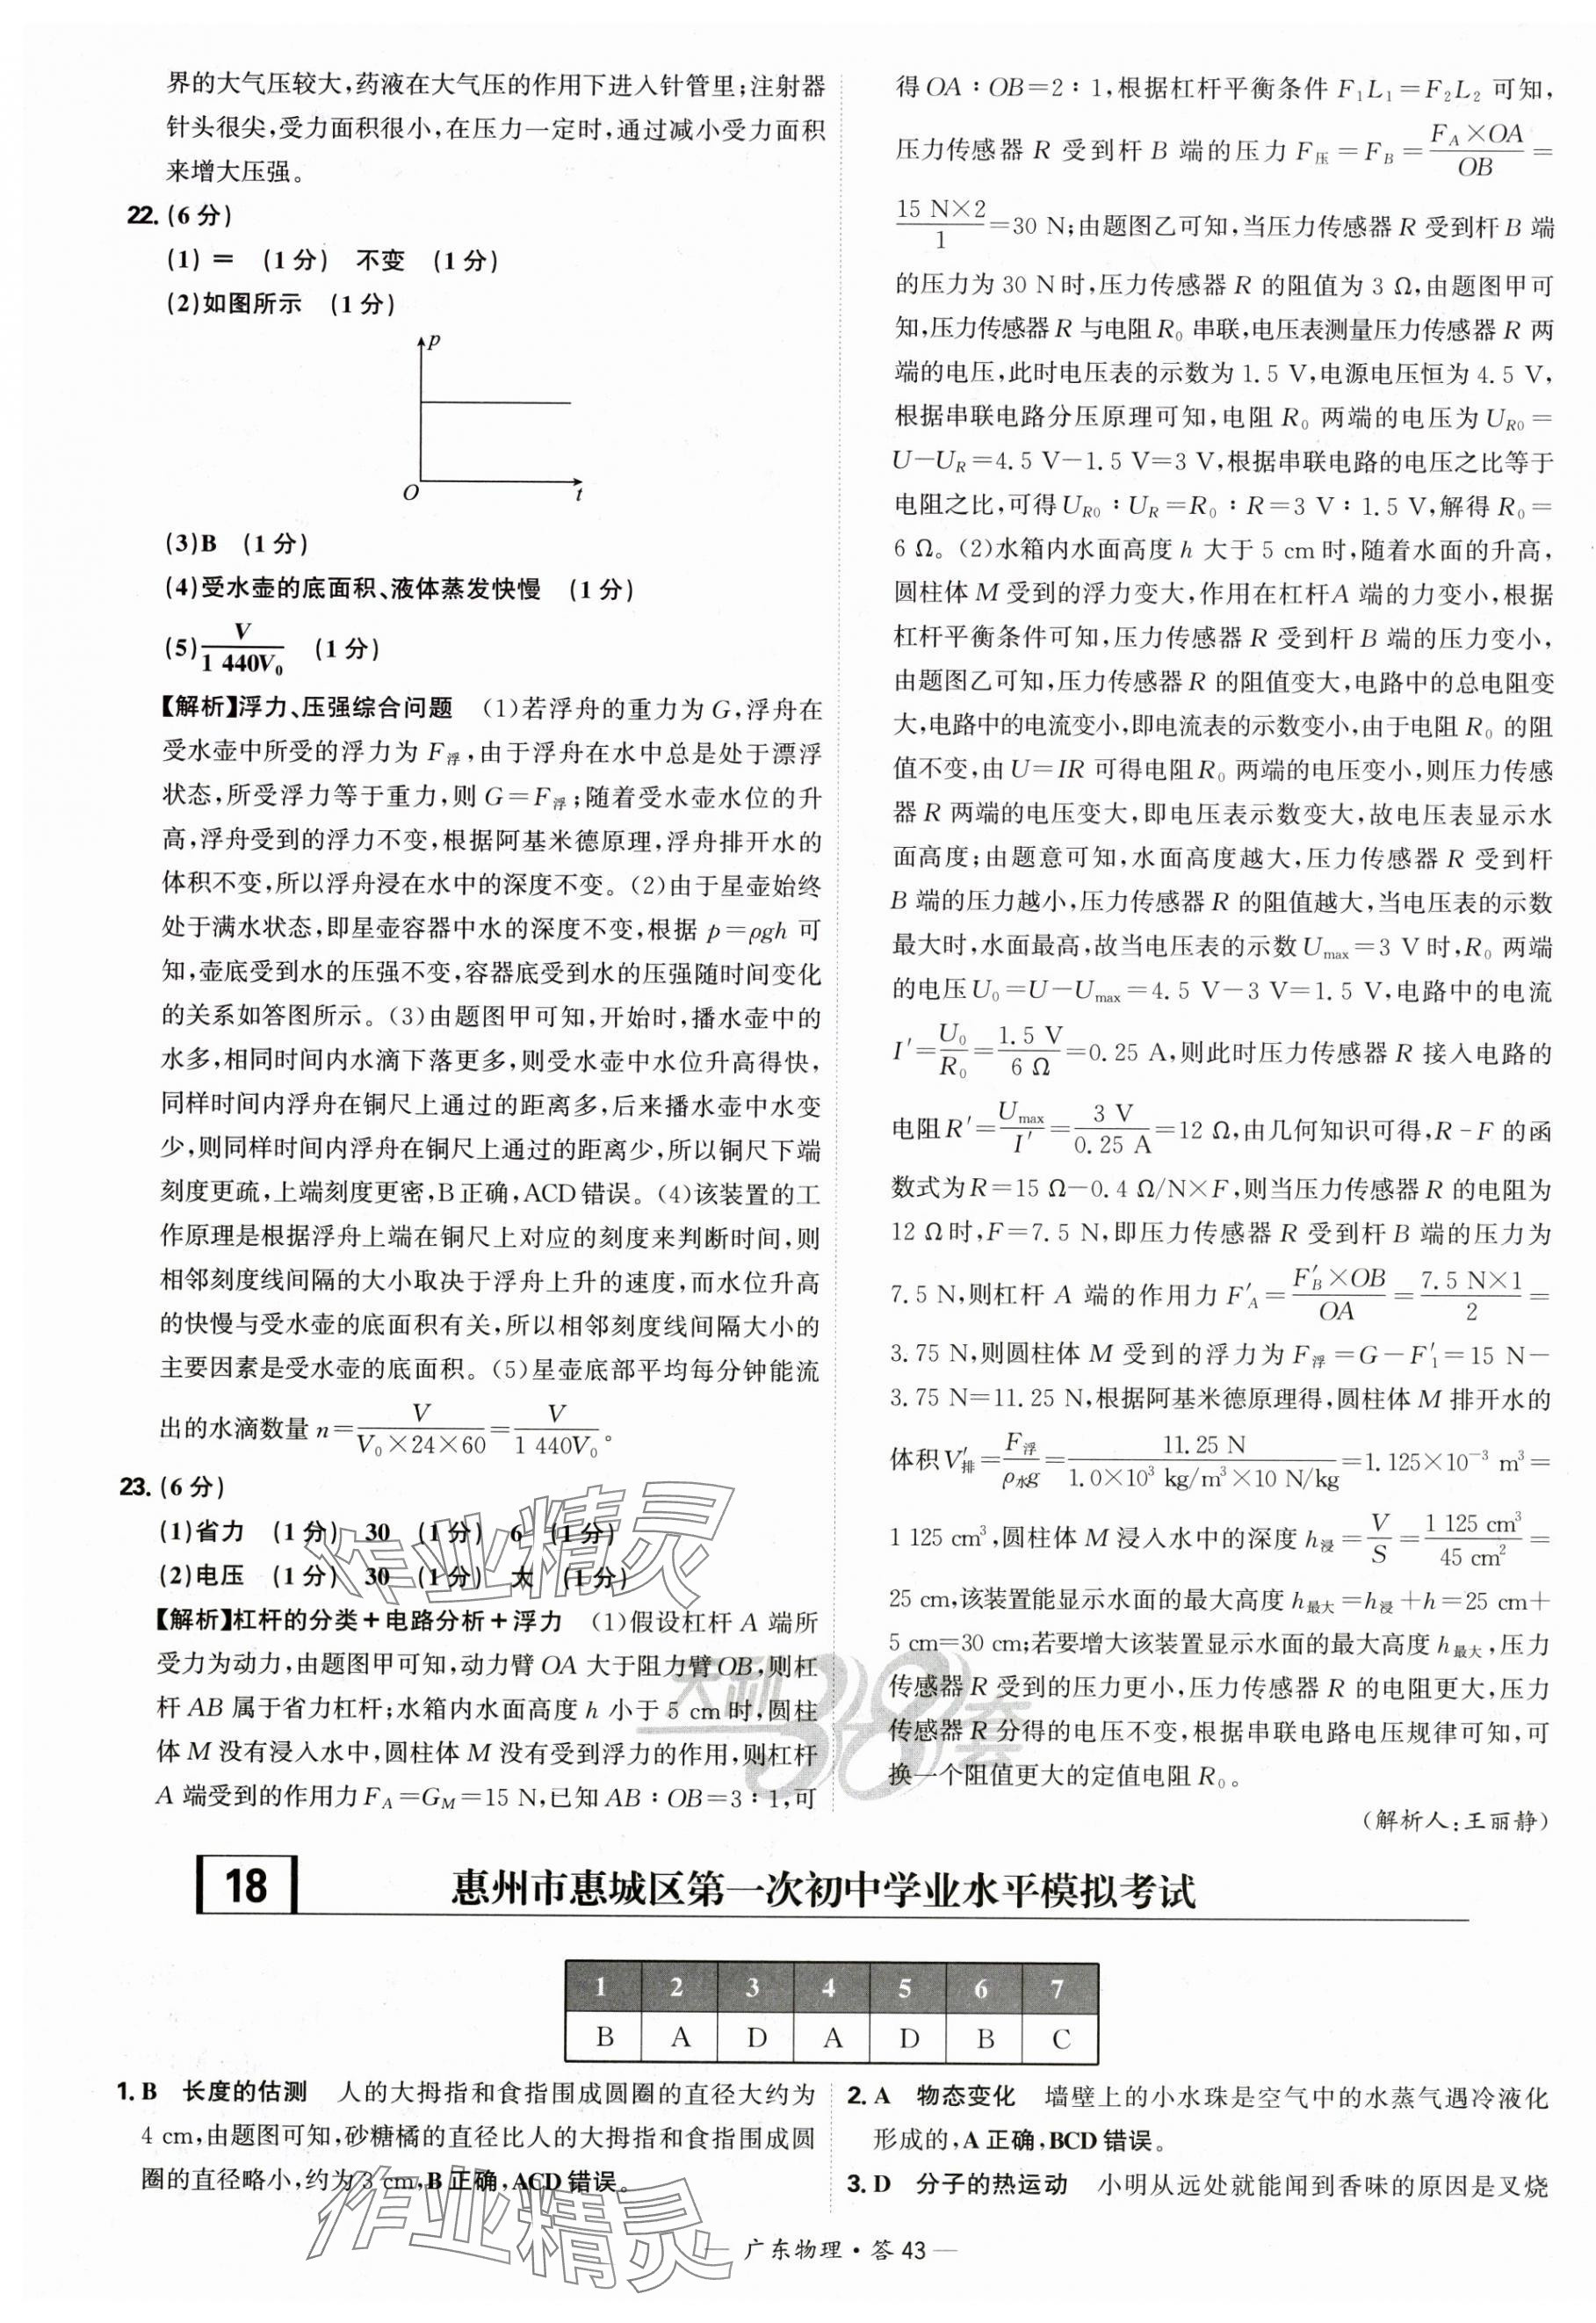 界的大气压较大,药液在大气压的作用下进入针管里;注射器
针头很尖,受力面积很小,在压力一定时,通过减小受力面积
来增大压强。
22. (6分)
(1) = (1分) 不变 (1分)
(2)如图所示 (1分)
p
O
t
(3)B (1分)
(4)受水壶的底面积、液体蒸发快慢 (1分)
(5) V/(1 440V₀) (1分)
【解析】浮力、压强综合问题 (1)若浮舟的重力为 G,浮舟在
受水壶中所受的浮力为 F浮,由于浮舟在水中总是处于漂浮
状态,所受浮力等于重力,则 G=F浮;随着受水壶水位的升
高,浮舟受到的浮力不变,根据阿基米德原理,浮舟排开水的
体积不变,所以浮舟浸在水中的深度不变。(2)由于星壶始终
处于满水状态,即星壶容器中水的深度不变,根据 p=ρgh 可
知,壶底受到水的压强不变,容器底受到水的压强随时间变化
的关系如答图所示。(3)由题图甲可知,开始时,播水壶中的
水多,相同时间内水滴下落更多,则受水壶中水位升高得快,
同样时间内浮舟在铜尺上通过的距离多,后来播水壶中水变
少,则同样时间内浮舟在铜尺上通过的距离少,所以铜尺下端
刻度更疏,上端刻度更密,B正确,ACD错误。(4)该装置的工
作原理是根据浮舟上端在铜尺上对应的刻度来判断时间,则
相邻刻度线间隔的大小取决于浮舟上升的速度,而水位升高
的快慢与受水壶的底面积有关,所以相邻刻度线间隔大小的
主要因素是受水壶的底面积。(5)星壶底部平均每分钟能流
出的水滴数量 n=V/(V₀×24×60)=V/(1 440V₀)。
23. (6分)
(1)省力 (1分) 30 (1分) 6 (1分)
(2)电压 (1分) 30 (1分) 大 (1分)
【解析】杠杆的分类+电路分析+浮力 (1)假设杠杆 A 端所
受力为动力,由题图甲可知,动力臂 OA 大于阻力臂 OB,则杠
杆 AB 属于省力杠杆;水箱内水面高度 h 小于 5 cm时,圆柱
体 M 没有浸入水中,圆柱体 M 没有受到浮力的作用,则杠杆
A 端受到的作用力 F_A=G_M=15 N,已知 AB∶OB=3∶1,可
得 OA∶OB=2∶1,根据杠杆平衡条件 F₁L₁=F₂L₂ 可知,
压力传感器 R 受到杆 B 端的压力 F压=F_B=(F_A×OA)/OB=
(15 N×2)/1=30 N;由题图乙可知,当压力传感器 R 受到杆 B 端
的压力为 30 N时,压力传感器 R 的阻值为 3 Ω,由题图甲可
知,压力传感器 R 与电阻 R₀ 串联,电压表测量压力传感器 R 两
端的电压,此时电压表的示数为 1.5 V,电源电压恒为 4.5 V,
根据串联电路分压原理可知,电阻 R₀ 两端的电压为 U_R0=
U-U_R=4.5 V-1.5 V=3 V,根据串联电路的电压之比等于
电阻之比,可得 U_R0∶U_R=R₀∶R=3 V∶1.5 V,解得 R₀=
6 Ω。(2)水箱内水面高度 h 大于 5 cm 时,随着水面的升高,
圆柱体 M 受到的浮力变大,作用在杠杆A 端的力变小,根据
杠杆平衡条件可知,压力传感器 R 受到杆 B 端的压力变小,
由题图乙可知,压力传感器 R 的阻值变大,电路中的总电阻变
大,电路中的电流变小,即电流表的示数变小,由于电阻 R₀ 的阻
值不变,由 U=IR 可得电阻 R₀ 两端的电压变小,则压力传感
器 R 两端的电压变大,即电压表示数变大,故电压表显示水
面高度;由题意可知,水面高度越大,压力传感器 R 受到杆
B 端的压力越小,压力传感器 R 的阻值越大,当电压表的示数
最大时,水面最高,故当电压表的示数 U_max=3 V 时,R₀ 两端
的电压 U₀=U-U_max=4.5 V-3 V=1.5 V,电路中的电流
I′=U₀/R₀=1.5 V/6 Ω=0.25 A,则此时压力传感器 R 接入电路的
电阻 R′=U_max/I′=3 V/0.25 A=12 Ω,由几何知识可得,R-F 的函
数式为 R=15 Ω-0.4 Ω/N×F,则当压力传感器 R 的电阻为
12 Ω时,F=7.5 N,即压力传感器 R 受到杆 B 端的压力为
7.5 N,则杠杆 A 端的作用力 F′_A=(F′_B×OB)/OA=(7.5 N×1)/2=
3.75 N,则圆柱体 M 受到的浮力为 F浮=G-F′₁=15 N-
3.75 N=11.25 N,根据阿基米德原理得,圆柱体 M 排开水的
体积 V′排=F浮/(ρ水g)=11.25 N/(1.0×10³ kg/m³×10 N/kg)=1.125×10⁻³ m³=
1 125 cm³,圆柱体 M 浸入水中的深度 h浸=V/S=1 125 cm³/45 cm²=
25 cm,该装置能显示水面的最大高度 h最大=h浸+h=25 cm+
5 cm=30 cm;若要增大该装置显示水面的最大高度 h最大,压力
传感器 R 受到的压力更小,压力传感器 R 的电阻更大,压力
传感器 R 分得的电压不变,根据串联电路电压规律可知,可
换一个阻值更大的定值电阻 R₀。
(解析人:王丽静)
作业精灵
天利38套
18 惠州市惠城区第一次初中学业水平模拟考试
1 2 3 4 5 6 7
B A D A D B C
1. B 长度的估测 人的大拇指和食指围成圆圈的直径大约为
4 cm,由题图可知,砂糖橘的直径比人的大拇指和食指围成圆
圈的直径略小,约为 3 cm,B正确,ACD错误。
2. A 物态变化 墙壁上的小水珠是空气中的水蒸气遇冷液化
形成的,A正确,BCD错误。
3. D 分子的热运动 小明从远处就能闻到香味的原因是叉烧
作业精灵
— 广东物理·答 43 —